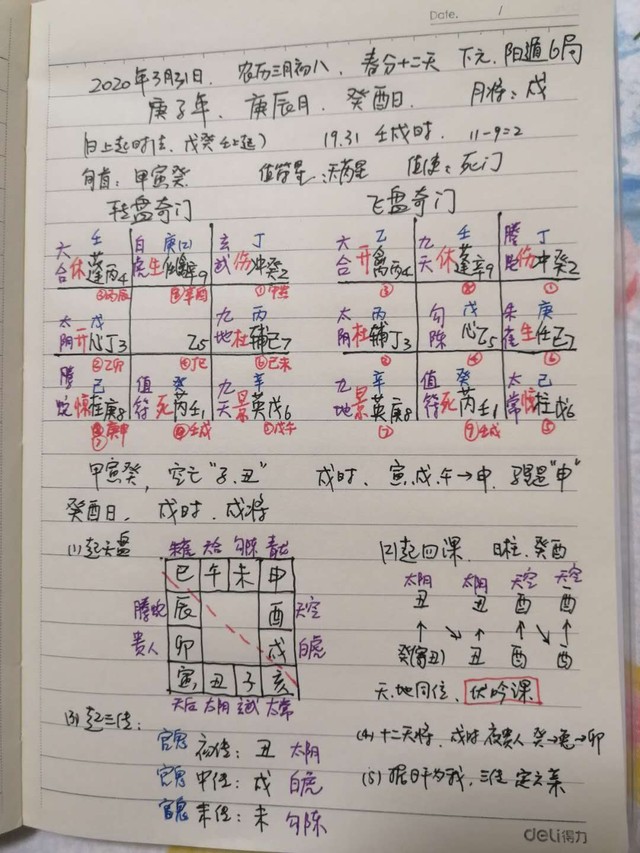 Date. /
2020年3月31日. 农历三月初八. 春分十二天 下元. 阳遁6局
庚子年. 庚辰月. 癸酉日. 月将: 戌
(日上起时法、戊癸壬上起) 19.31 壬戌时. 11-9=2
旬首: 甲寅癸 值符星: 天芮星 值使: 死门
转盘奇门 飞盘奇门
六 壬 白 庚 玄 丁
合休蓬丙4 虎生 辛9 武伤冲癸2
六 乙 九 壬 螣 丁
合开禽丙4 天休蓬辛9 蛇伤冲癸2
太 戊 九 丙
阴开心丁3 乙5 地杜辅己7
太 丙 勾 戊 朱 庚
阴杜辅丁3 陈心乙5 雀生任己7
螣 己 值 癸 九 辛
蛇惊柱庚8 符死芮壬1 天景英戊6
九 辛 值 癸 太 己
地景英庚8 符死芮壬1 常惊柱戊6
甲寅癸, 空亡"子、丑" 戌时、寅.戌.午→申. 马星"申"
癸酉日、戌时、戌将
(1)起天盘 (2)起四课. 日柱: 癸酉
朱雀 六合 勾陈 青龙
巳 午 未 申
螣蛇 辰 酉 天空
贵人 卯 戌 白虎
寅 丑 子 亥
天后 太阴 玄武 太常
太阴 太阴 天空 天空
丑 丑 酉 酉
↑ ↘ ↑ ↘ ↑
癸(寄丑) 丑 酉 酉
天地同位、伏吟课
(3)起三传:
官鬼 初传: 丑 太阴
官鬼 中传: 戌 白虎
官鬼 末传: 未 勾陈
(4)十二天将. 戌时夜贵人 癸→兔→卯
(5)据日干为我, 三传定六亲
deli得力